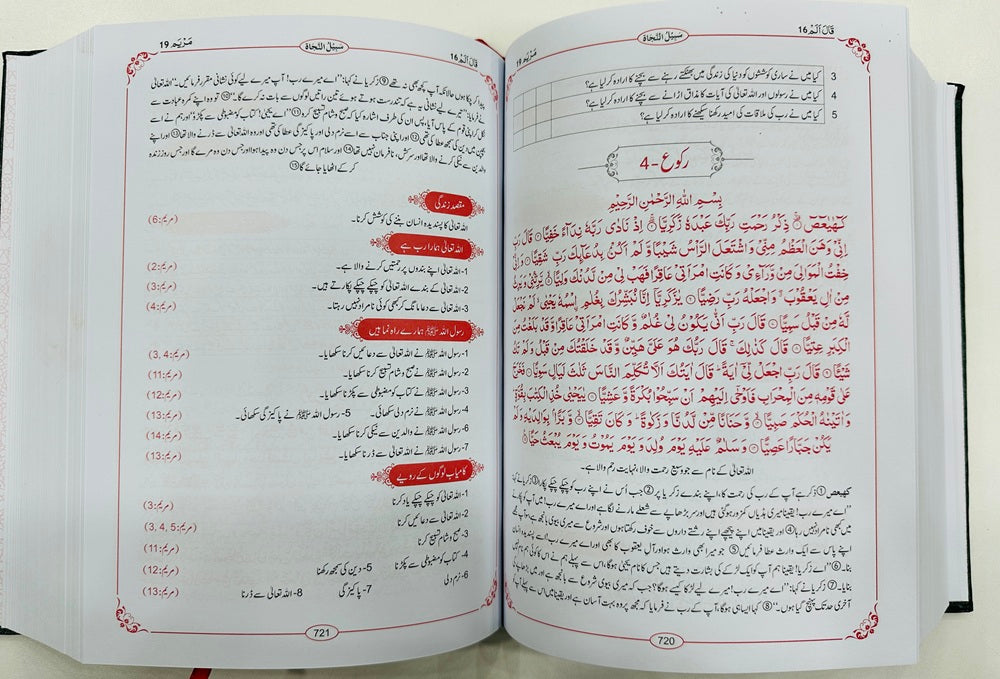 قَالَ اَلَمْ 16
سَبِيْلُ النَّجَاة
مَرْيَم 19
3 کیا میں نے ساری کوششوں کو دنیا کی زندگی میں بھٹکتے رہنے سے بچنے کا ارادہ کر لیا ہے؟
4 کیا میں نے رسولوں اور اللہ تعالیٰ کی آیات کا مذاق اڑانے سے بچنے کا ارادہ کر لیا ہے؟
5 کیا میں نے رب کی ملاقات کی امید رکھنا سیکھنے کا ارادہ کر لیا ہے؟
رکوع - 4
بِسْمِ اللّٰهِ الرَّحْمٰنِ الرَّحِيْمِ
كٓهٰيٰعٓصٓ ۞ ذِكْرُ رَحْمَتِ رَبِّكَ عَبْدَهٗ زَكَرِيَّا ۞ اِذْ نَادٰى رَبَّهٗ نِدَآءً خَفِيًّا ۞ قَالَ رَبِّ
اِنِّيْ وَهَنَ الْعَظْمُ مِنِّيْ وَاشْتَعَلَ الرَّاْسُ شَيْبًا وَّلَمْ اَكُنْۢ بِدُعَآئِكَ رَبِّ شَقِيًّا ۞ وَاِنِّيْ
خِفْتُ الْمَوَالِيَ مِنْ وَّرَآءِيْ وَكَانَتِ امْرَاَتِيْ عَاقِرًا فَهَبْ لِيْ مِنْ لَّدُنْكَ وَلِيًّا ۞ يَّرِثُنِيْ وَيَرِثُ
مِنْ اٰلِ يَعْقُوْبَ وَاجْعَلْهُ رَبِّ رَضِيًّا ۞ يٰزَكَرِيَّآ اِنَّا نُبَشِّرُكَ بِغُلٰمِ اِۨسْمُهٗ يَحْيٰى لَمْ نَجْعَلْ
لَّهٗ مِنْ قَبْلُ سَمِيًّا ۞ قَالَ رَبِّ اَنّٰى يَكُوْنُ لِيْ غُلٰمٌ وَّكَانَتِ امْرَاَتِيْ عَاقِرًا وَّقَدْ بَلَغْتُ مِنَ
الْكِبَرِ عِتِيًّا ۞ قَالَ كَذٰلِكَ قَالَ رَبُّكَ هُوَ عَلَيَّ هَيِّنٌ وَّقَدْ خَلَقْتُكَ مِنْ قَبْلُ وَلَمْ تَكُ
شَيْئًا ۞ قَالَ رَبِّ اجْعَلْ لِّيْٓ اٰيَةً قَالَ اٰيَتُكَ اَلَّا تُكَلِّمَ النَّاسَ ثَلٰثَ لَيَالٍ سَوِيًّا ۞ فَخَرَجَ
عَلٰى قَوْمِهٖ مِنَ الْمِحْرَابِ فَاَوْحٰٓى اِلَيْهِمْ اَنْ سَبِّحُوْا بُكْرَةً وَّعَشِيًّا ۞ يٰيَحْيٰى خُذِ الْكِتٰبَ بِقُوَّةٍ
وَاٰتَيْنٰهُ الْحُكْمَ صَبِيًّا ۞ وَّحَنَانًا مِّنْ لَّدُنَّا وَزَكٰوةً وَكَانَ تَقِيًّا ۞ وَّبَرًّاۢ بِوَالِدَيْهِ وَلَمْ
يَكُنْ جَبَّارًا عَصِيًّا ۞ وَسَلٰمٌ عَلَيْهِ يَوْمَ وُلِدَ وَيَوْمَ يَمُوْتُ وَيَوْمَ يُبْعَثُ حَيًّا ۞
اللہ تعالیٰ کے نام سے جو وسیع رحمت والا، نہایت رحم والا ہے۔
کھیعص ① ذکر ہے آپ کے رب کی رحمت کا، اپنے بندے زکریا پر ② جب اُس نے اپنے رب کو چپکے چپکے پکارا ③ زکریا نے کہا:
”اے میرے رب! یقیناً میری ہڈیاں کمزور ہو گئی ہیں اور سر بڑھاپے سے شعلے مارنے لگا ہے اور اے میرے رب! میں آپ کو پکار کے
میں کبھی نامراد نہیں رہا ④ اور یقیناً میں اپنے پیچھے اپنے رشتے داروں سے خوف رکھتا ہوں اور شروع سے میری بیوی بانجھ ہے،
اپنے پاس سے ایک وارث عطا فرمائیں ⑤ جو میرا بھی وارث ہو اور آلِ یعقوب کا بھی اور اے میرے رب! اسے پسندیدہ انسان
بنا۔ ⑥ ”اے زکریا! یقیناً ہم آپ کو ایک لڑکے کی بشارت دیتے ہیں جس کا نام یحییٰ ہوگا، اس سے پہلے ہم نے اس کا کوئی ہم نام نہیں
بنایا۔ ⑦ زکریا نے کہا: ”اے میرے رب! میرے لیے لڑکا کیسے ہوگا؟ جب کہ میری بیوی شروع سے بانجھ ہے اور میں بڑھاپے کی
آخری حد تک پہنچ گیا ہوں۔“ ⑧ کہا ایسا ہی ہوگا، آپ کے رب نے فرمایا کہ مجھ پر وہ بہت آسان ہے اور یقیناً میں اس سے پہلے آپ کو
720
قَالَ اَلَمْ 16
سَبِيْلُ النَّجَاة
مَرْيَم 19
پیدا کر چکا ہوں حالانکہ آپ کچھ بھی نہ تھے ⑨ زکریا نے کہا: ”اے میرے رب! آپ میرے لیے کوئی نشانی مقرر فرمائیں۔“ اللہ تعالیٰ
نے فرمایا: ”تیرے لیے نشانی یہ ہے کہ تندرست ہوتے ہوئے تین راتیں لوگوں سے بات نہ کرے گا۔“ ⑩ تو وہ اپنے کمرہ عبادت سے
نکل کر اپنی قوم کے پاس آیا، پس ان کی طرف اشارہ کیا کہ صبح و شام تسبیح کرو ⑪ ”اے یحییٰ! کتاب کو مضبوطی سے پکڑو“ اور ہم نے اسے
بچپن میں دین کی سمجھ عطا کی تھی ⑫ اور اپنی جناب سے اسے نرم دلی اور پاکیزگی عطا کی تھی اور وہ اللہ تعالیٰ سے ڈرنے والا تھا ⑬ اور اپنے
والدین سے نیکی کرنے والا تھا اور سرکش، نافرمان نہیں تھا ⑭ اور سلام اس پر جس دن وہ پیدا ہوا اور جس دن وہ مرے گا اور جس روز زندہ
کر کے اٹھایا جائے گا ⑮
مقصد زندگی
اللہ تعالیٰ کا پسندیدہ انسان بننے کی کوشش کرنا۔ (مریم:6)
اللہ تعالیٰ ہمارا رب ہے
1- اللہ تعالیٰ اپنے بندوں پر رحمتیں کرنے والا ہے۔ (مریم:2)
2- اللہ تعالیٰ کے بندے اللہ تعالیٰ کو چپکے چپکے پکارتے ہیں۔ (مریم:3)
3- اللہ تعالیٰ سے دعا مانگ کر کبھی کوئی نامراد نہیں رہتا۔ (مریم:4)
رسول اللہ ﷺ ہمارے راہ نما ہیں
1- رسول اللہ ﷺ نے اللہ تعالیٰ سے دعائیں کرنا سکھایا۔ (مریم:4, 3)
2- رسول اللہ ﷺ نے صبح و شام تسبیح کرنا سکھایا۔ (مریم:11)
3- رسول اللہ ﷺ نے کتاب کو مضبوطی سے پکڑنا سکھایا۔ (مریم:12)
4- رسول اللہ ﷺ نے نرم دلی سکھائی۔ 5- رسول اللہ ﷺ نے پاکیزگی سکھائی۔ (مریم:13)
6- رسول اللہ ﷺ نے والدین سے نیکی کرنا سکھایا۔ (مریم:14)
7- رسول اللہ ﷺ نے اللہ تعالیٰ سے ڈرنا سکھایا۔ (مریم:13)
کامیاب لوگوں کے رویے
1- اللہ تعالیٰ کو چپکے چپکے یاد کرنا (مریم:3)
2- اللہ تعالیٰ سے دعائیں کرنا (مریم:5 ,4 ,3)
3- صبح و شام تسبیح کرنا (مریم:11)
4- کتاب کو مضبوطی سے پکڑنا 5- دین کی سمجھ رکھنا (مریم:12)
6- نرم دلی 7- پاکیزگی 8- اللہ تعالیٰ سے ڈرنا (مریم:13)
721